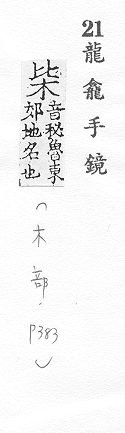 21龍龕手鏡
柴音秘魯東
郊地名也
(木部,P383)